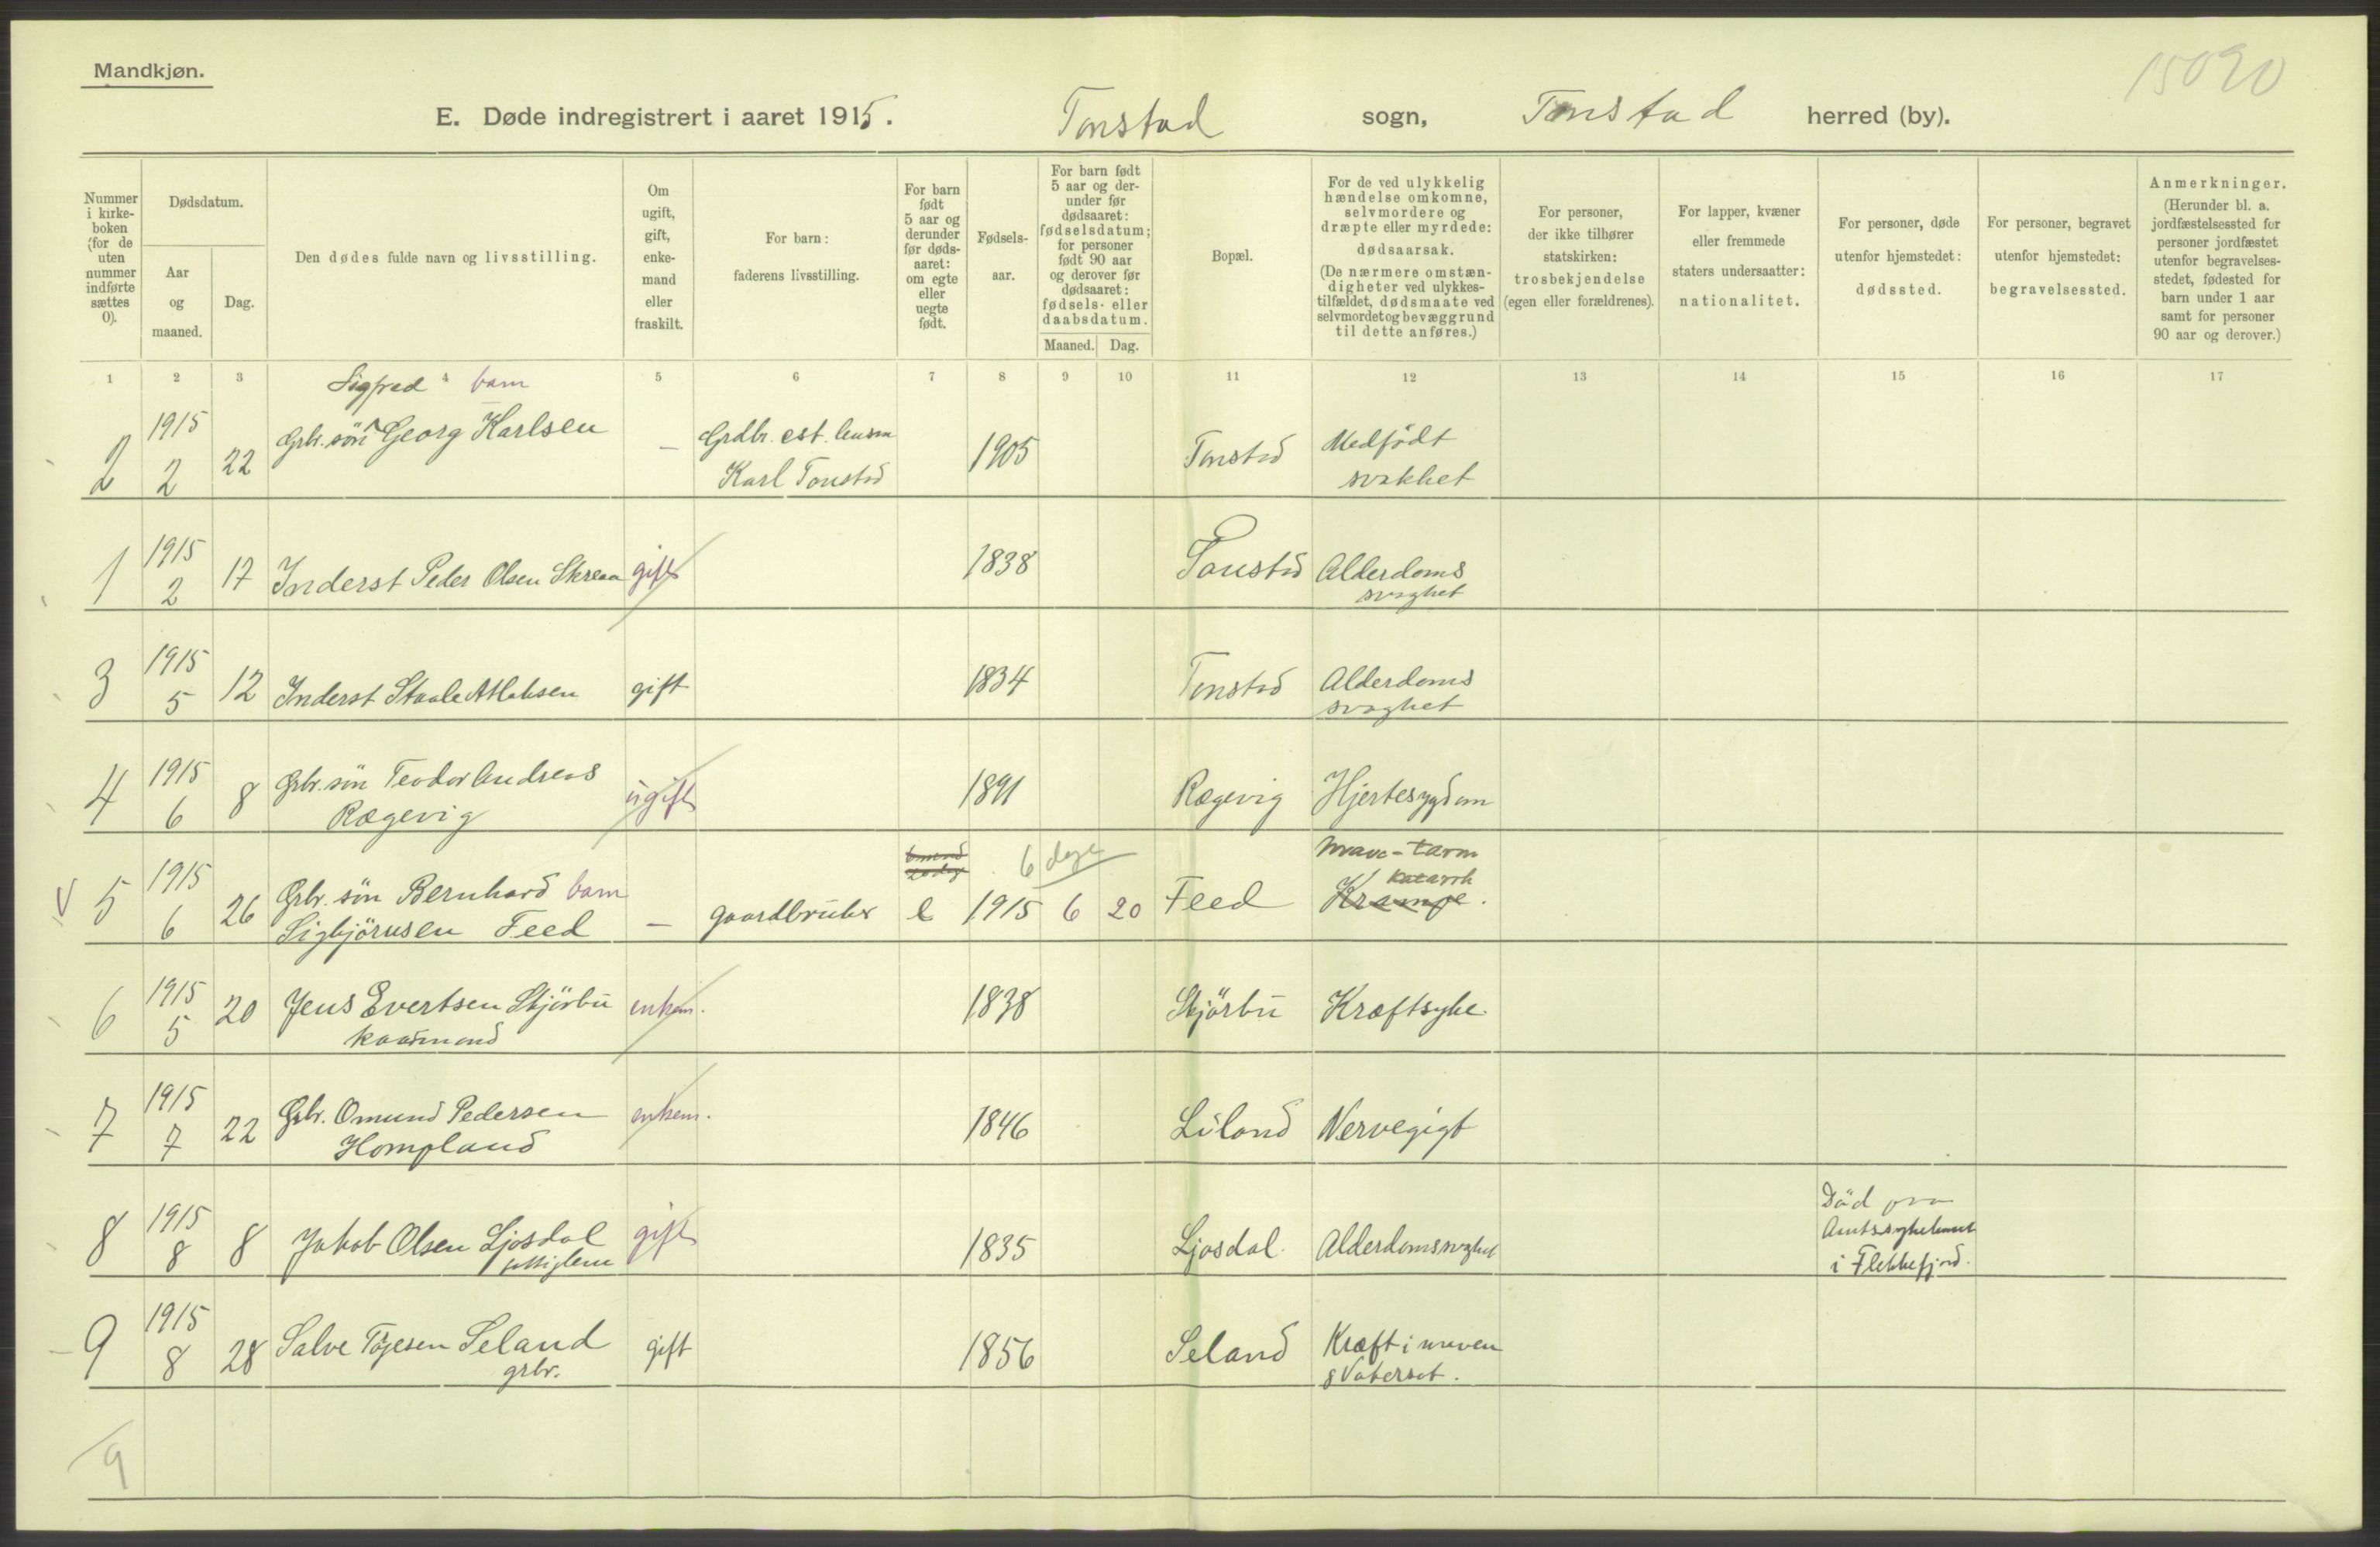 Mandkjøn.
15090
E. Døde indregistrert i aaret 1915. Tonstad sogn, Tonstad herred (by).
Nummer i kirke-boken (for de uten nummer indførte sættes 0).
Dødsdatum.
Aar og maaned.
Dag.
Den dødes fulde navn og livsstilling.
Om ugift, gift, enke-mand eller fraskilt.
For barn: faderens livsstilling.
For barn født 5 aar og derunder før døds-aaret: om egte eller uegte født.
Fødsels-aar.
For barn født 5 aar og der-under før dødsaaret: fødselsdatum; for personer født 90 aar og derover før dødsaaret: fødsels- eller daabsdatum.
Maaned. Dag.
Bopæl.
For de ved ulykkelig hændelse omkomne, selvmordere og dræpte eller myrdede: dødsaarsak. (De nærmere omstæn-digheter ved ulykkes-tilfældet, dødsmaate ved selvmordet og bevæggrund til dette anføres.)
For personer, der ikke tilhører statskirken: trosbekjendelse (egen eller forældrenes).
For lapper, kvæner eller fremmede staters undersaatter: nationalitet.
For personer, døde utenfor hjemstedet: dødssted.
For personer, begravet utenfor hjemstedet: begravelsessted.
Anmerkninger. (Herunder bl. a. jordfæstelsessted for personer jordfæstet utenfor begravelses-stedet, fødested for barn under 1 aar samt for personer 90 aar og derover.)
1 2 3 4 5 6 7 8 9 10 11 12 13 14 15 16 17
Sigfred barn
2 1915 2 22 Grbr. søn Georg Karlsen — Grdbr. est. lensm Karl Tonstad 1905 Tonstad Medfödt svakhet
1 1915 2 17 Inderst Peder Olsen Skreaa gift 1838 Tonstad Alderdoms svaghet
3 1915 5 12 Inderst Staale Atlaksen gift 1834 Tonstad Alderdoms svaghet
4 1915 6 8 Grbr. sön Teodor Andreas Rægevig ugift 1891 Rægevig Hjertesygdom
6 dage
mave-tarm katarrh
5 1915 6 26 Grbr. sön Bernhard barn Sigbjörnsen Feed — gaardbruker e 1915 6 20 Feed Krampe.
6 1915 5 20 Jens Evertsen Skjörbu kaarmand enkem. 1838 Skjörbu Kræftsyke
7 1915 7 22 Grbr. Omund Pedersen Hompland enkem. 1846 Liland Nervegigt
8 1915 8 8 Jakob Olsen Ljosdal fattiglem gift 1835 Ljosdal. Alderdomssvaghet Död paa Amtssykehuset i Flekkefjord.
9 1915 8 28 Salve Tøjesen Seland grbr. gift 1856 Seland Kræft i maven & Vatersot.
9